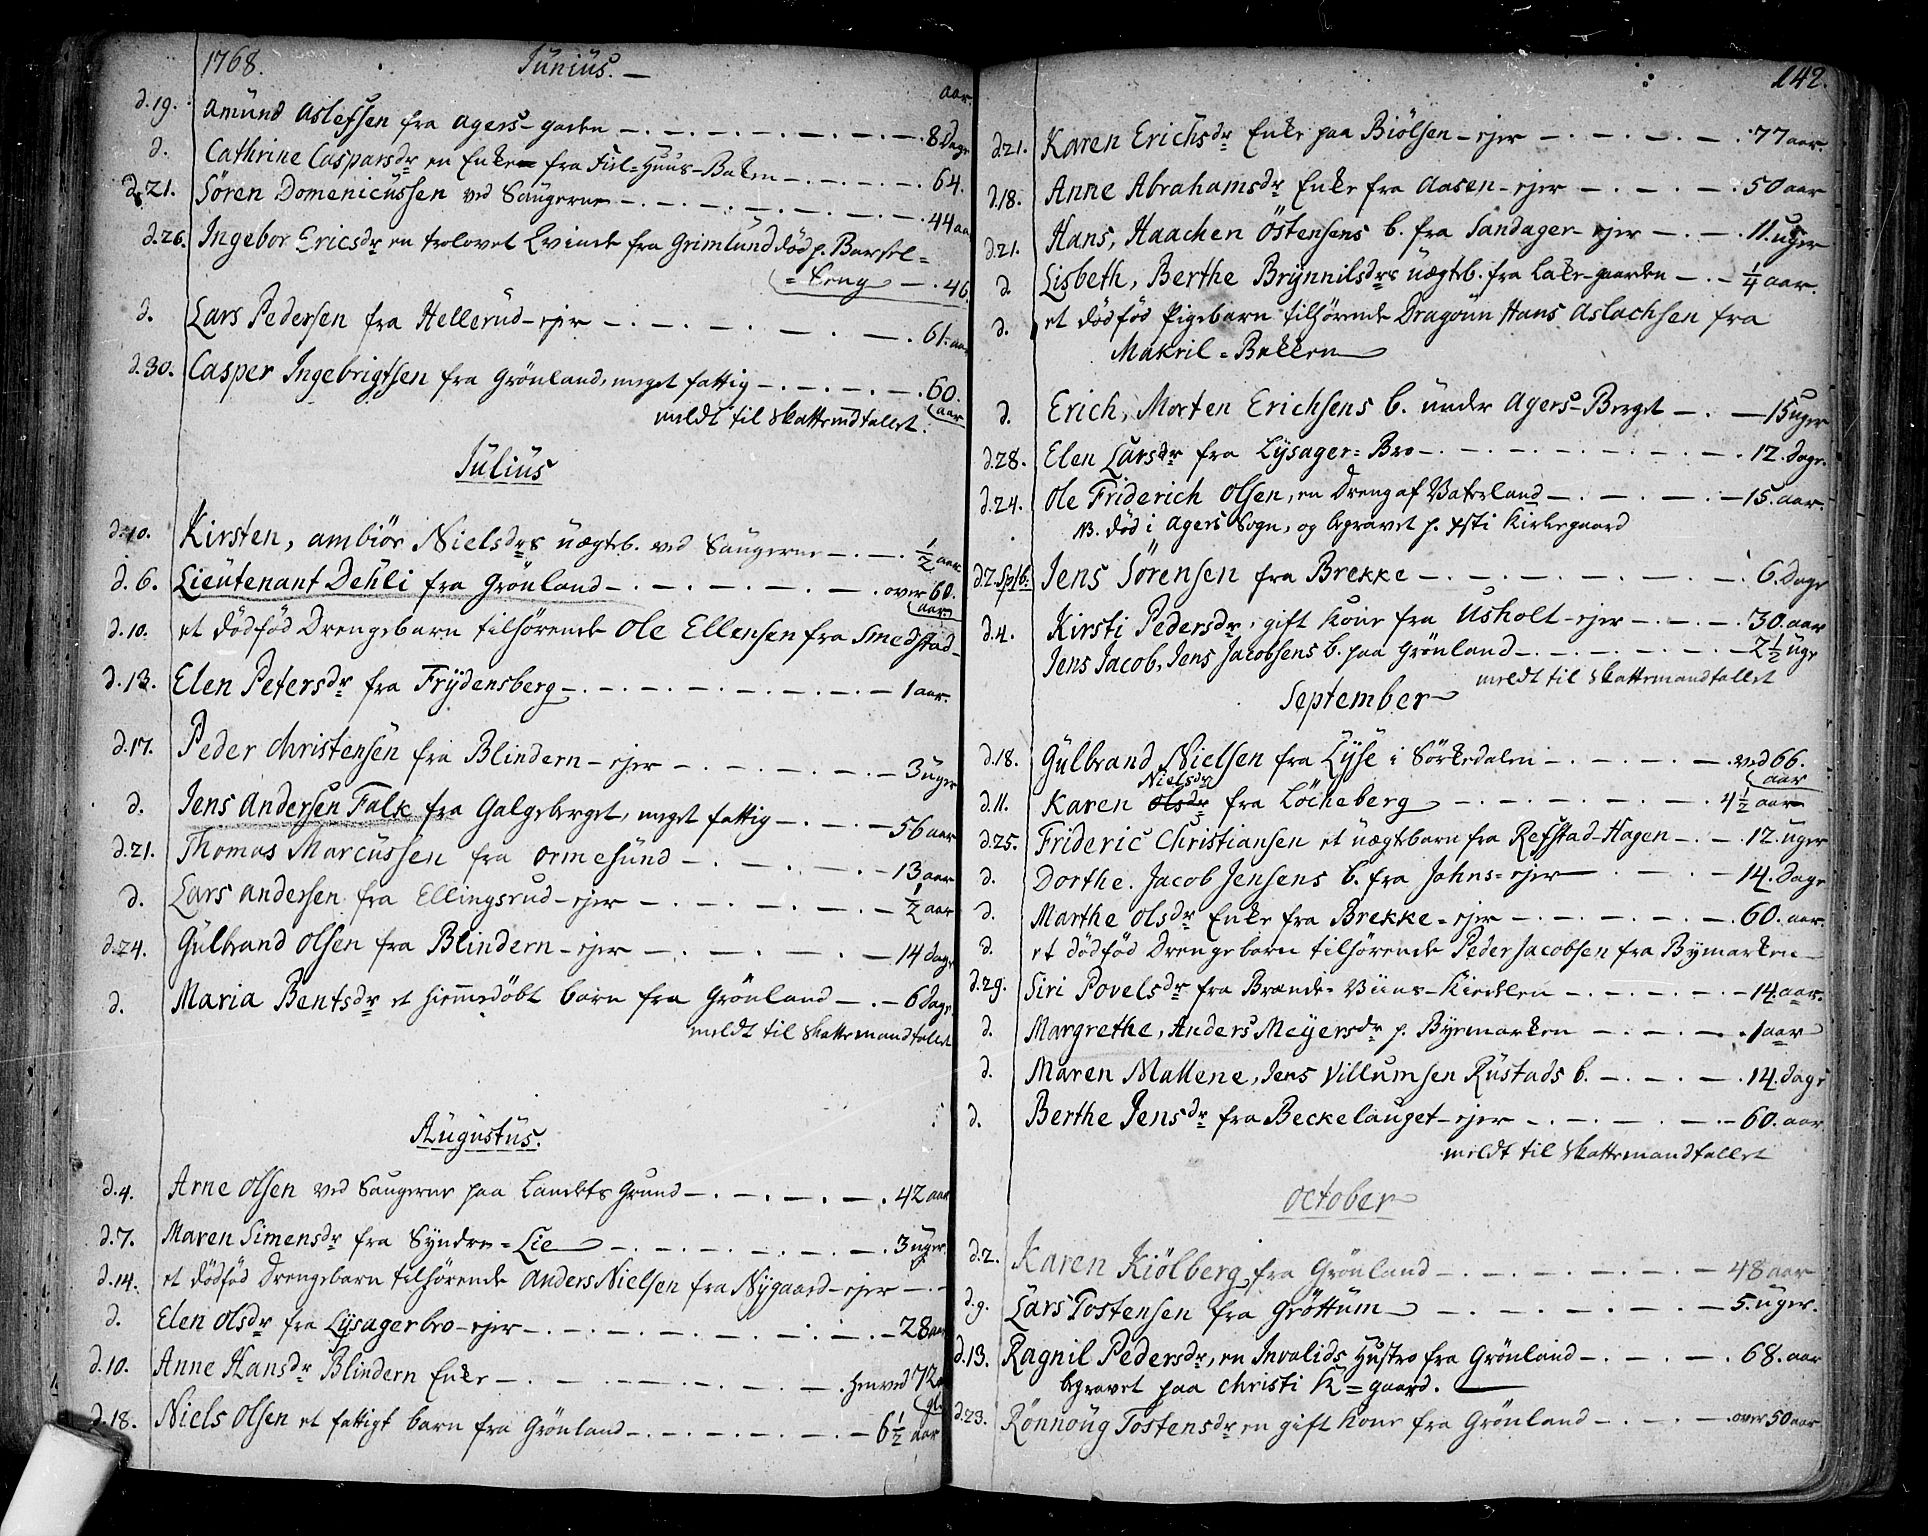 1768. Junius.
aar.
d.19. Amund Aslefsen fra Agers-gaden 8 Dage
d. Cathrine Caspersdr en Enke fra Fiel-Huus-Baken 64.
d.21. Sören Domenicussen ved Saugerne 44 aar
d.26. Ingebor Ericsdr en trolovet Qvinde fra Grimlund död p. Barsel=
=seng 46.
d. Lars Pedersen fra Hellerud-ejer 61. aar
d.30. Casper Ingebrigtsen fra Grönland, meget fattig 60.
aar
meldt til Skattemdtallet.
Julius
d.10. Kirsten, ambiör Nielsdrs uægteb. ved Saugerne ½ aar
d.6. Lieutenant Dehli fra Grönland over 60.
aar
d.10. et dödföd Drengebarn tilhörende Ole Ellensen fra Smedstad
d.13. Elen Petersdr fra Frydensberg 1 aar.
d.17. Peder Christensen fra Blindern-ejer 3 uger
d. Jens Andersen Falk fra Galgeberget, meget fattig 56 aar
d.21. Thomas Marcussen fra Ormesund 13 aar
d. Lars Andersen fra Ellingsrud-ejer ½ aar
d.24. Gulbrand Olsen fra Blindern-ejer 14 dage
d. Maria Bentsdr et hiemedöbt barn fra Grönland 6 dage
meldt til Skattemandtallet
Augustus.
d.4. Arne Olsen ved Saugerne paa Landets Grund 42 aar
d.7. Maren Simensdr fra Syndre-Lie 3 uger
d.14. et dödföd Drengebarn tilhörende Anders Nielsen fra Nygaard-ejer
d. Elen Olsdr fra Lysagerbro-ejer 28 aar
d.10. Anne Hansdr Blindern Enke henved 72
d.18. Niels Olsen et fattigt barn fra Grönland 6½ aar
142.
d.21. Karen Erichsdr Enke paa Biölsen-ejer 77 aar.
d.18. Anne Abrahamsdr Enke fra Aasen-ejer 50 aar
d.21. Hans, Haachen Östensens b. fra Sandager-ejer 11. uger
d. Lisbeth, Berthe Brynnilsdrs uægteb. fra Lake-gaarden ¼ aar.
d. et dödföd Pigebarn tilhörende Dragoun Hans Aslachsen fra
Makril-Bakken
d. Erich, Morten Erichsens b. under Agers-Berget 15 uger
d.28. Elen Larsdr fra Lysager-Bro 12. dage.
d.24. Ole Friderich Olsen, en Dreng af Vaterland 15. aar.
NB. död i Agers Sogn, og begravet p. Xsti Kirkegaard
d.2. Sptb. Jens Sörensen fra Brekke 6. Dage
d.4. Kirsti Pedersdr, gift kone fra Usholt-ejer 30. aar
Jens Jacob, Jens Jacobsens b. paa Grönland 2½ uge
meldt til Skattemandtallet
September
d.18. Gulbrand Nielsen fra Lyse i Sörkedalen ved 66.
aar
Nielsdr
d.11. Karen Olsdr fra Löcheberg 4½ aar
d.25. Frideric Christiansen et uægtebarn fra Refstad-Hagen 12. uger
d. Dorthe. Jacob Jensens b. fra Jahns-ejer 14. Dage
d. Marthe Olsdr Enke fra Brekke-ejer 60. aar.
d. et dödföd Drengebarn tilhörende Peder Jacobsen fra Bymarken
d.29. Siri Povelsdr fra Brænde-Viins-Kieelen 14. aar.
d. Margrethe, Anders Meyersdr p. Byemarken 1 aar
d. Maren Mallene, Jens Villumsen Rustads b. 14. dage
d. Berthe Jensdr fra Beckelauget-ejer 60. aar
meldt til Skattemandtallet
October
d.2. Karen Kiölberg, fra Grönland 48 aar
d.9. Lars Tostensen fra Gröttum 5. uger.
d.13. Ragnil Pedersdr, en Invalids Hustro fra Grönland 68. aar
begravet paa Christi K=gaard.
d.23. Rönnoug Tostensdr en gift kone fra Grönland over 50 aar